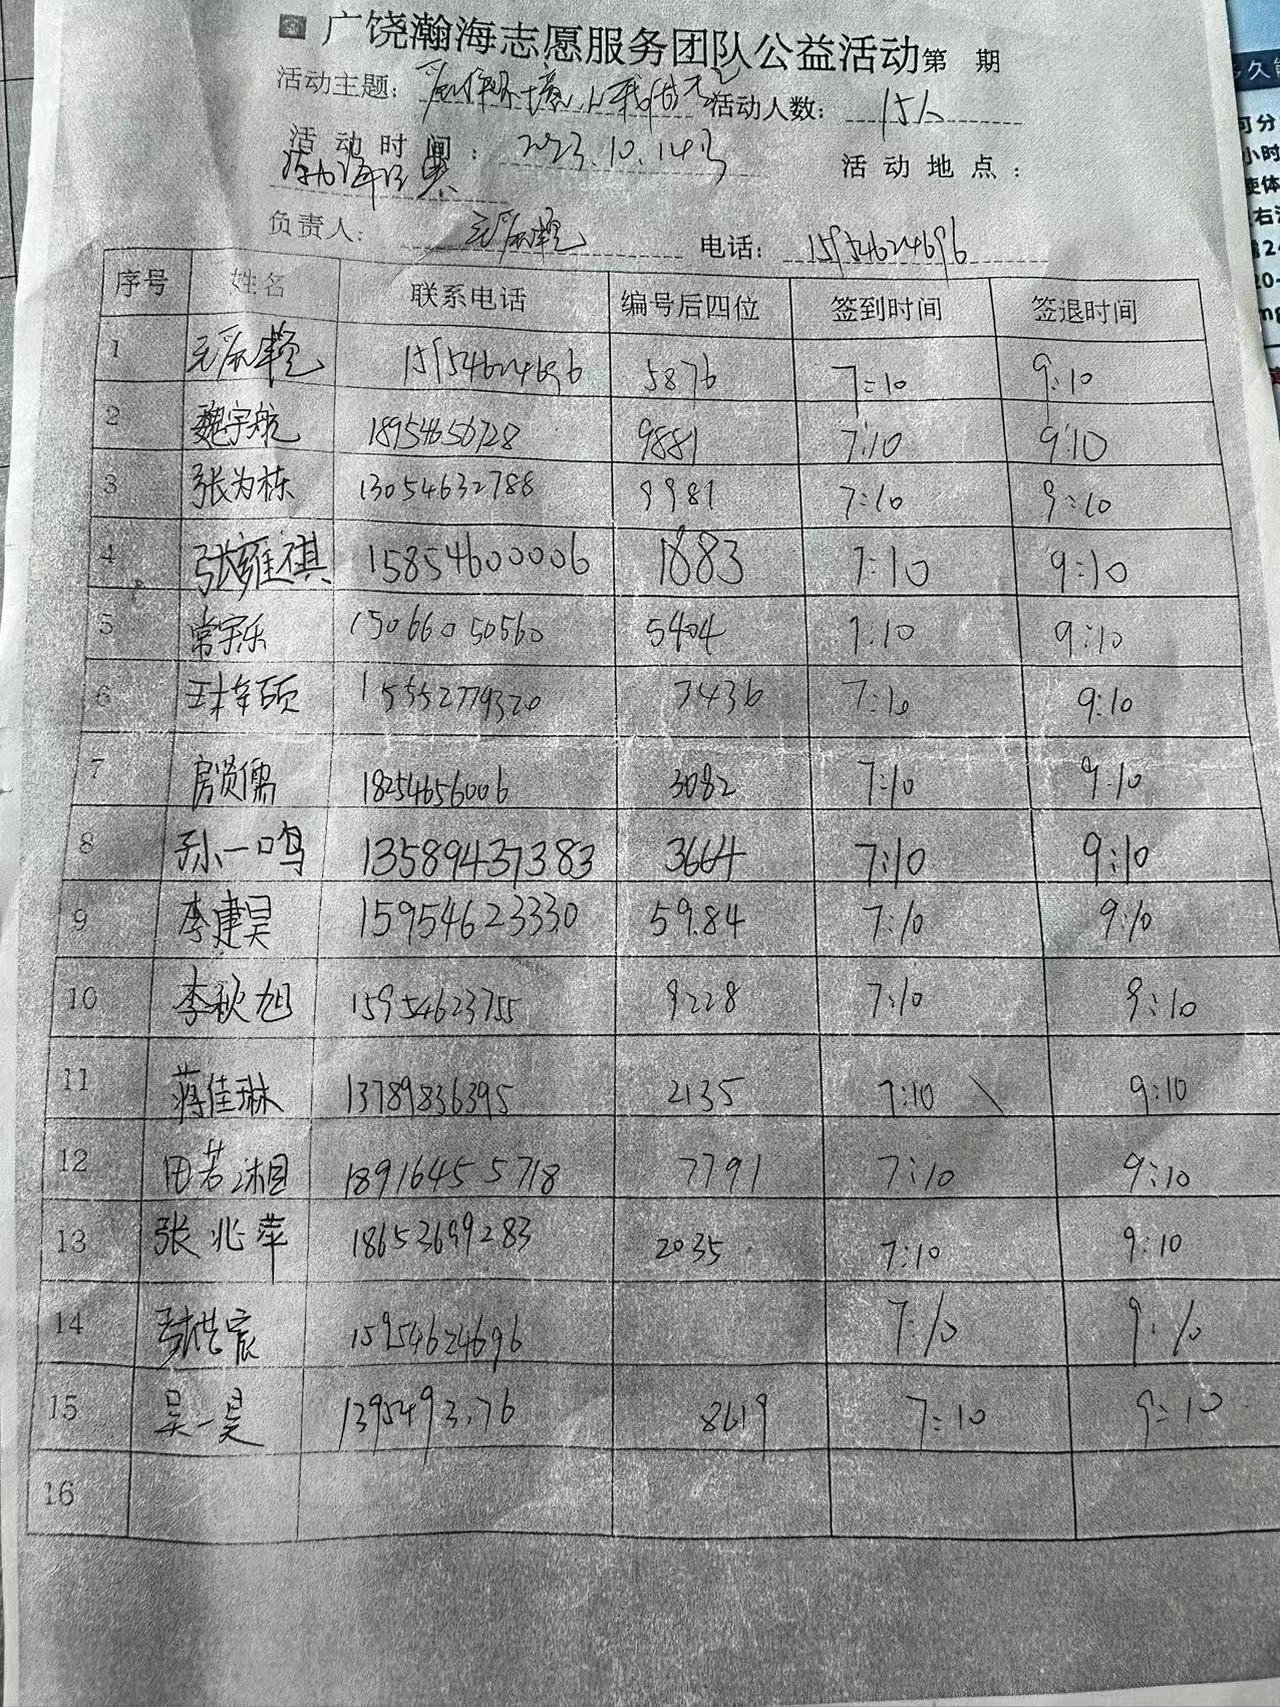 广饶瀚海志愿服务团队公益活动第 期
活动主题： 活动人数： 15人
活动时间： 2023.10.14日 活动地点：
负责人： 电话： 15954624696
序号 姓名 联系电话 编号后四位 签到时间 签退时间
1 15954624696 5876 7:10 9:10
2 魏宇航 18954656728 9881 7:10 9:10
3 张为栋 13054632788 9981 7:10 9:10
4 张雍祺 15854600006 1883 7:10 9:10
5 常宇乐 15066050560 5404 7:10 9:10
6 15552779320 7436 7:10 9:10
7 房贤儒 18254656006 3082 7:10 9:10
8 孙一鸣 13589437383 3664 7:10 9:10
9 李建昊 15954623330 5984 7:10 9:10
10 李秋旭 15954623755 9228 7:10 9:10
11 蒋佳琳 13789836395 2135 7:10 9:10
12 田若湘 18916455718 7791 7:10 9:10
13 张兆苹 18653699283 2035 7:10 9:10
14 15954624696 7:10 9:10
15 吴一昊 8619 7:10 9:10
16